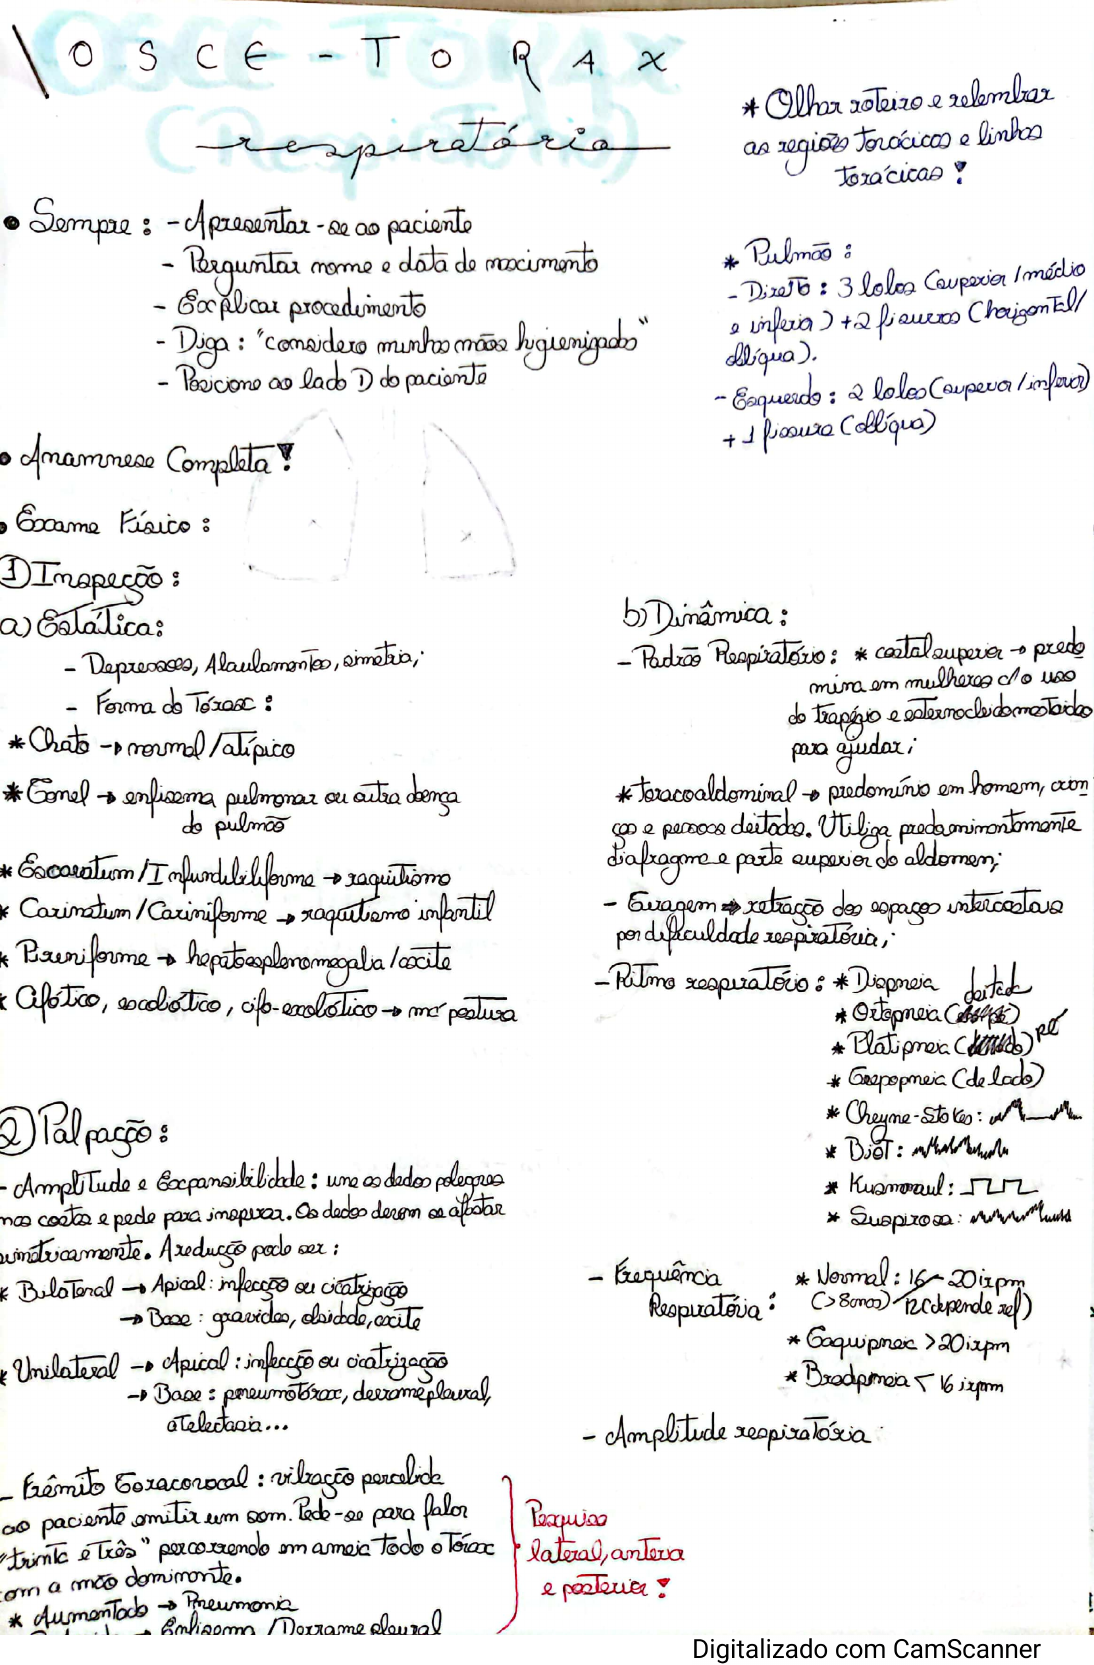 OSCE - TORAX
respiratório
* Olhar roteiro e relembrar
as regiões torácicas e linhas
torácicas !
• Sempre : - Apresentar-se ao paciente
- Perguntar nome e data de nascimento
- Explicar procedimento
- Diga : "considero minhas mãos higienizadas"
- Posicione ao lado D do paciente
* Pulmão :
- Direito : 3 lobos (superior/médio
e inferior) + 2 fissuras (horizontal/
oblíqua).
- Esquerdo : 2 lobos (superior/inferior)
+ 1 fissura (oblíqua)
• Anamnese Completa !
• Exame Físico :
1) Inspeção :
a) Estática :
- Depressões, Abaulamentos, simetria;
- Forma do Tórax :
* Chato → normal/atípico
* Tonel → enfisema pulmonar ou outra doença
do pulmão
* Escavatum/Infundibiliforme → raquitismo
* Carinatum/Cariniforme → raquitismo infantil
* Piriniforme → hepatoesplenomegalia/ascite
* Cifótico, escoliótico, cifo-escoliótico → má postura
b) Dinâmica :
- Padrão Respiratório : * costal superior → predo
mina em mulheres c/o uso
do trapézio e esternocleidomastoideo
para ajudar;
* toracoabdominal → predomínio em homem, crian
ças e pessoas deitadas. Utiliza predominantemente
diafragma e parte superior do abdomen;
- Tiragem → retração dos espaços intercostais
por dificuldade respiratória;
- Ritmo respiratório : * Dispneia
* Ortopneia ( ) deitado
* Platipneia ( ) pé
* Trepopneia (de lado)
* Cheyne-Stokes :
* Biot :
* Kusmmaul :
* Suspirosa :
- Frequência Respiratória : * Normal : 16 - 20 irpm
(>8 anos) 12 (depende ref)
* Taquipneia > 20 irpm
* Bradpneia < 16 irpm
- Amplitude respiratória
2) Palpação :
- Amplitude e Expansibilidade : une os dedos polegres
nas costas e pede para inspirar. Os dedos devem se afastar
simetricamente. A redução pode ser :
* Bilateral → Apical : infecção ou cicatrização
→ Base : gravidez, obsidade, ascite
* Unilateral → Apical : infecção ou cicatrização
→ Base : pneumotórax, derrame pleural,
atelectasia...
- Frêmito Toracovocal : vibração percebida
ao paciente emitir um som. Pede-se para falar
"trinta e três" percorrendo em ameia todo o Tórax
com a mão dominante.
* Aumentado → Pneumonia
→ Enfisema / Derrame pleural
Pesquisa
lateral, anterior
e posterior !
Digitalizado com CamScanner